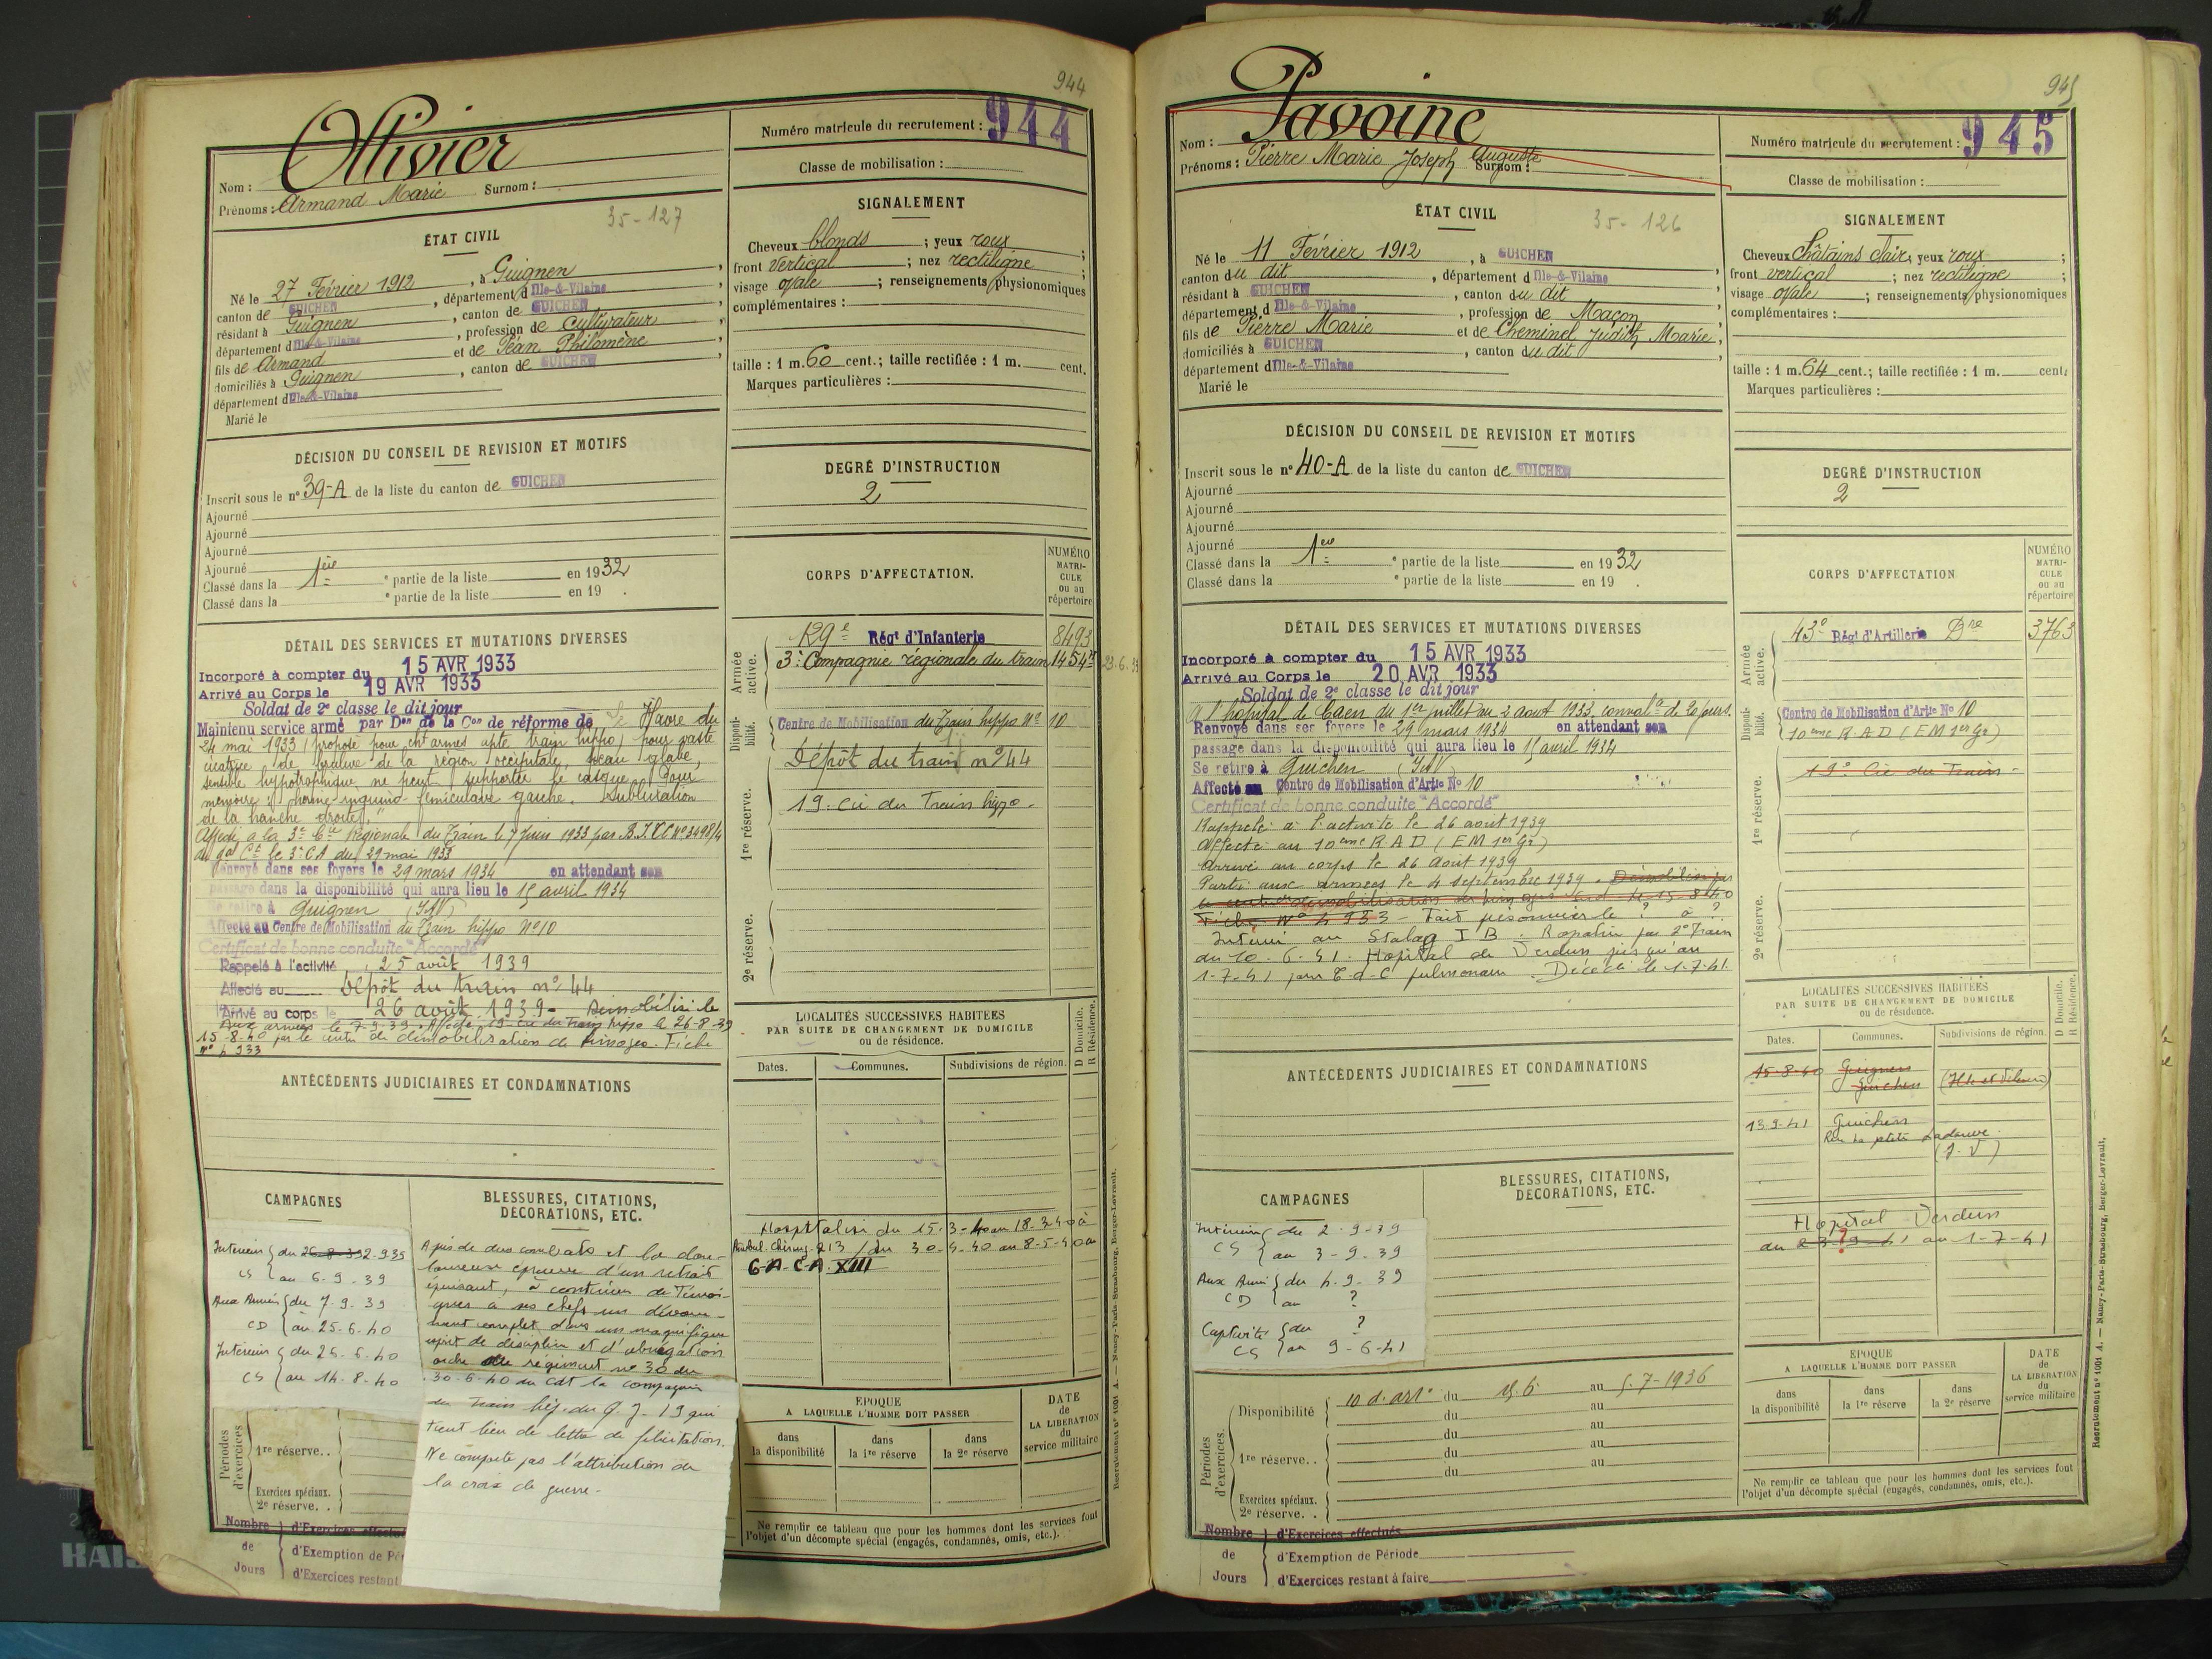 944
Ollivier
Nom :
Prénoms : Armand Marie Surnom :
Numéro matricule du recrutement : 944
Classe de mobilisation :
35-127
ÉTAT CIVIL
Né le 27 Février 1912, à Guignen,
canton de GUICHEN, département d Ille-&-Vilaine,
résidant à Guignen, canton de GUICHEN,
département d Ille-&-Vilaine, profession de Cultivateur,
fils de Armand et de Péan Philomène,
domiciliés à Guignen, canton de GUICHEN,
département d Ille-&-Vilaine
Marié le
SIGNALEMENT
Cheveux blonds ; yeux roux ;
front vertical ; nez rectiligne ;
visage ovale ; renseignements physionomiques
complémentaires :
taille : 1 m. 60 cent.; taille rectifiée : 1 m. cent.
Marques particulières :
DÉCISION DU CONSEIL DE REVISION ET MOTIFS
Inscrit sous le n° 39-A de la liste du canton de GUICHEN
Ajourné
Ajourné
Ajourné
Ajourné
Classé dans la 1ère e partie de la liste en 1932
Classé dans la e partie de la liste en 19 .
DEGRÉ D'INSTRUCTION
2
DÉTAIL DES SERVICES ET MUTATIONS DIVERSES
Incorporé à compter du 15 AVR 1933
Arrivé au Corps le 19 AVR 1933
Soldat de 2e classe le dit jour
Maintenu service armé par Don de la Con de réforme de Le Havre du
24 mai 1933 (proposé pour cht armes apte train hippo) pour vaste
cicatrice de brûlure de la région occipitale, peau glabre,
sensible hypotrophique ne peut supporter le casque. Pour
mémoire : hernie inguino-funiculaire gauche. Subluxation
de la hanche droite."
Affecté à la 3e Cie Régionale du Train le 7 Juin 1933 par B.I.C.C n° 3498/4
du gal Ct le 3e CA du 29 mai 1933
Renvoyé dans ses foyers le 29 mars 1934 en attendant son
passage dans la disponibilité qui aura lieu le 15 avril 1934
Se retire à Guignen (I&V)
Affecté au Centre de Mobilisation du Train hippo N°10
Certificat de bonne conduite "Accordé"
Rappelé à l'activité 25 août 1939
Affecté au Dépôt du train n° 44
Arrivé au corps le 26 août 1939 - Démobilisé le
Aux armées le 7-9-39. Affecté 19e cie du Train hippo le 26-8-39
15-8-40 par le centre de démobilisation de Limoges. Fiche
n° 4933
CORPS D'AFFECTATION.
NUMÉRO MATRI-CULE ou au répertoire
Armée active.
129e Régt d'Infanterie 8493
3e Compagnie régionale du train 1454 23.6.33
Disponi-bilité.
Centre de Mobilisation du Train hippo N° 10
Dépôt du train n° 44
1re réserve.
19e cie du Train hippo.
2e réserve.
LOCALITÉS SUCCESSIVES HABITÉES
PAR SUITE DE CHANGEMENT DE DOMICILE
ou de résidence.
D Domicile.
R Résidence.
Dates. Communes. Subdivisions de région.
Hospitalisé du 15-3-40 au 18-3-40 à
Ambul. Chirurg. 213 / du 30-4-40 au 8-5-40 au
G-A-C-A XIII
ANTÉCÉDENTS JUDICIAIRES ET CONDAMNATIONS
CAMPAGNES
Intérieur du 26-8-39 2.9.39
CS au 6-9-39
Aux Armées du 7.9.39
CD au 25-6-40
Intérieur du 26-6-40
CS au 14-8-40
BLESSURES, CITATIONS,
DÉCORATIONS, ETC.
A pris de durs combats et la dou-
loureuse épreuve d'un retrait
épuisant, à continuer de Témoi-
gner à ses chefs un dévoue-
ment complet dans un magnifique
esprit de discipline et d'abnégation
ordre du régiment n° 30 du
30-6-40 du Cdt la compagnie
du Train hip. du Q.G. 19 qui
tient lieu de lettre de félicitations.
Ne comporte pas l'attribution de
la croix de guerre.
Périodes d'exercices
1re réserve..
Exercices spéciaux.
2e réserve..
Nombre de Jours
d'Exercices effectués
d'Exemption de Pé
d'Exercices restant
ÉPOQUE
A LAQUELLE L'HOMME DOIT PASSER
dans la disponibilité
dans la 1re réserve
dans la 2e réserve
DATE de LA LIBÉRATION du service militaire
Ne remplir ce tableau que pour les hommes dont les services font
l'objet d'un décompte spécial (engagés, condamnés, omis, etc.).
Recrutement n° 1001 A. — Nancy-Paris-Strasbourg, Berger-Levrault.
945
Pavoine
Nom :
Prénoms : Pierre Marie Joseph Auguste Surnom :
Numéro matricule du recrutement : 945
Classe de mobilisation :
35-126
ÉTAT CIVIL
Né le 11 Février 1912, à GUICHEN
canton du dit, département d Ille-&-Vilaine,
résidant à GUICHEN, canton du dit,
département d Ille-&-Vilaine, profession de Maçon,
fils de Pierre Marie et de Cheminel Judith Marie,
domiciliés à GUICHEN, canton du dit,
département d Ille-&-Vilaine
Marié le
SIGNALEMENT
Cheveux Châtains clair ; yeux roux ;
front vertical ; nez rectiligne ;
visage ovale ; renseignements physionomiques
complémentaires :
taille : 1 m. 64 cent.; taille rectifiée : 1 m. cent.
Marques particulières :
DÉCISION DU CONSEIL DE REVISION ET MOTIFS
Inscrit sous le n° 40-A de la liste du canton de GUICHEN
Ajourné
Ajourné
Ajourné
Ajourné
Classé dans la 1ere e partie de la liste en 1932
Classé dans la e partie de la liste en 19 .
DEGRÉ D'INSTRUCTION
2
DÉTAIL DES SERVICES ET MUTATIONS DIVERSES
Incorporé à compter du 15 AVR 1933
Arrivé au Corps le 20 AVR 1933
Soldat de 2e classe le dit jour
A l'hôpital de Caen du 1er juillet au 2 août 1933, conval. de 20 jours.
Renvoyé dans ses foyers le 29 mars 1934 en attendant son
passage dans la disponibilité qui aura lieu le 15 avril 1934
Se retire à Guichen (I&V)
Affecté au Centre de Mobilisation d'Artie N° 10
Certificat de bonne conduite "Accordé"
Rappelé à l'activité le 26 août 1939
affecté au 10eme R A D (EM 1er Gr)
Arrivé au corps le 26 Août 1939
Parti aux armées le 4 septembre 1939. Démobilisé par
le centre démobilisation de Limoges le 15-8-40
Fiche n° 4933 - Fait prisonnier le ? à ?
Interné au Stalag I B. Rapatrié par 2e Train
du 10-6-41. Hôpital de Verdun jusqu'au
1-7-41 pour pulmonaire. Décédé le 1-7-41.
CORPS D'AFFECTATION
NUMÉRO MATRI-CULE ou au répertoire
Armée active.
43e Régt d'Artillerie Dre 3763
Disponi-bilité.
Centre de Mobilisation d'Artie N° 10
10eme R.A.D (EM 1er Gr)
1re réserve.
19e Cie du Train
2e réserve.
LOCALITÉS SUCCESSIVES HABITÉES
PAR SUITE DE CHANGEMENT DE DOMICILE
ou de résidence.
D Domicile.
R Résidence.
Dates. Communes. Subdivisions de région.
15-8-40 Guignen
Guichen (Ille et Vilaine)
13-9-41 Guichen
(I.V)
Hôpital Verdun
du 23-9-41 ? au 1-7-41
ANTÉCÉDENTS JUDICIAIRES ET CONDAMNATIONS
CAMPAGNES
Intérieur du 2-9-39
CS au 3-9-39
Aux Armées du 4.9.39
CD au ?
Captivité du ?
CS au 9-6-41
BLESSURES, CITATIONS,
DÉCORATIONS, ETC.
Périodes d'exercices.
Disponibilité 10 d.art. du 15.6 au 5-7-1936
du au
du au
1re réserve.. du au
du au
Exercices spéciaux.
2e réserve..
Nombre de Jours
d'Exercices effectués
d'Exemption de Période
d'Exercices restant à faire
ÉPOQUE
A LAQUELLE L'HOMME DOIT PASSER
dans la disponibilité
dans la 1re réserve
dans la 2e réserve
DATE de LA LIBÉRATION du service militaire
Ne remplir ce tableau que pour les hommes dont les services font
l'objet d'un décompte spécial (engagés, condamnés, omis, etc.).
Recrutement n° 1001 A. — Nancy-Paris-Strasbourg, Berger-Levrault.